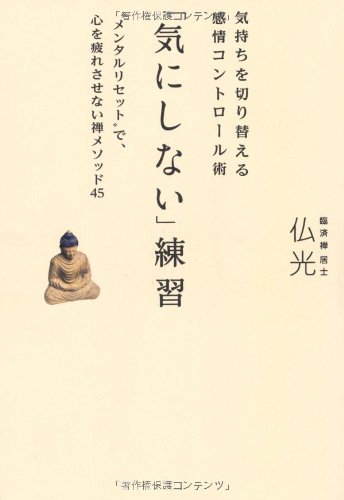 「著作権保護コンテンツ」
気持ちを切り替える
感情コントロール術
「気にしない」練習
〝メンタルリセット〟で、
心を疲れさせない禅メソッド45
臨済禅 居士
仏光
「著作権保護コンテンツ」